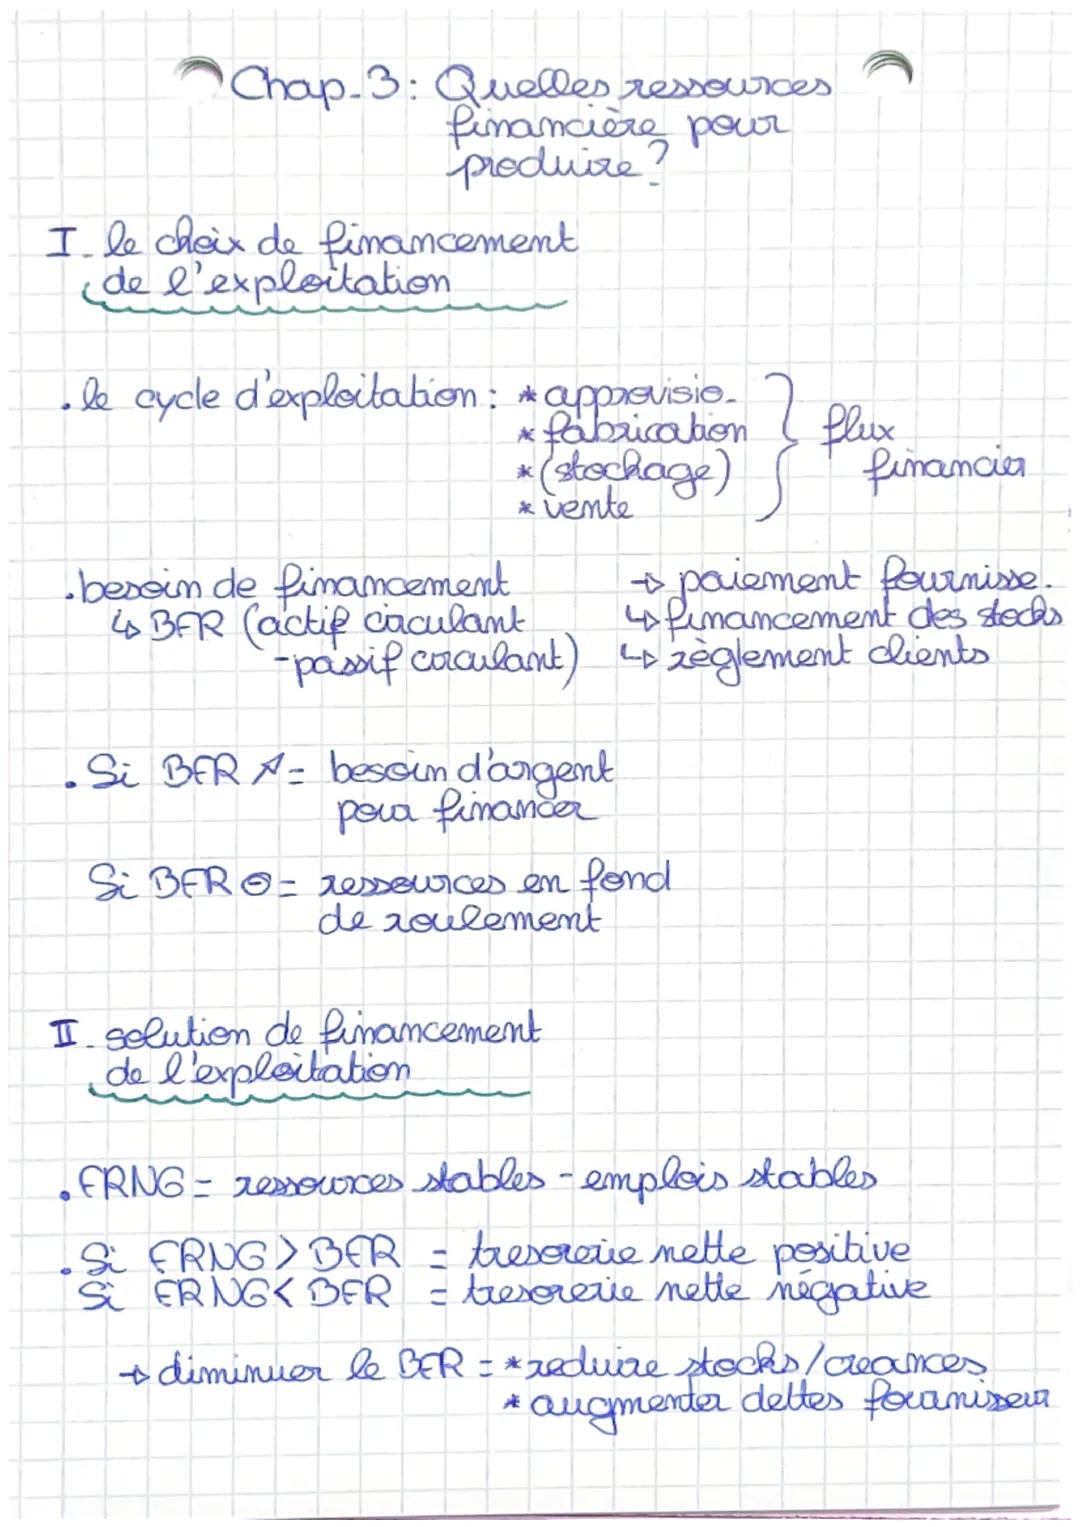 Chap.3: Quelles ressources
financière pour
produire?
I. le choix de financement
de l'exploitation
. le cycle d'exploitation : * approvisio.
* fabrication
* (stockage)
* vente
flux
financier
. besoin de financement
↳ BFR (actif circulant
- passif circulant)
→ paiement fournisse.
↳ financement des stocks
↳ règlement clients
. Si BFR ↗ = besoin d'argent
pour financer
Si BFR ⊖ = ressources en fond
de roulement
II. solution de financement
de l'exploitation
. FRNG = ressources stables - emplois stables
. Si FRNG > BFR = tresorerie nette positive
Si FRNG < BFR = tresorerie nette négative
→ diminuer le BFR = * reduire stocks/creances
* augmenter dettes fournisseur